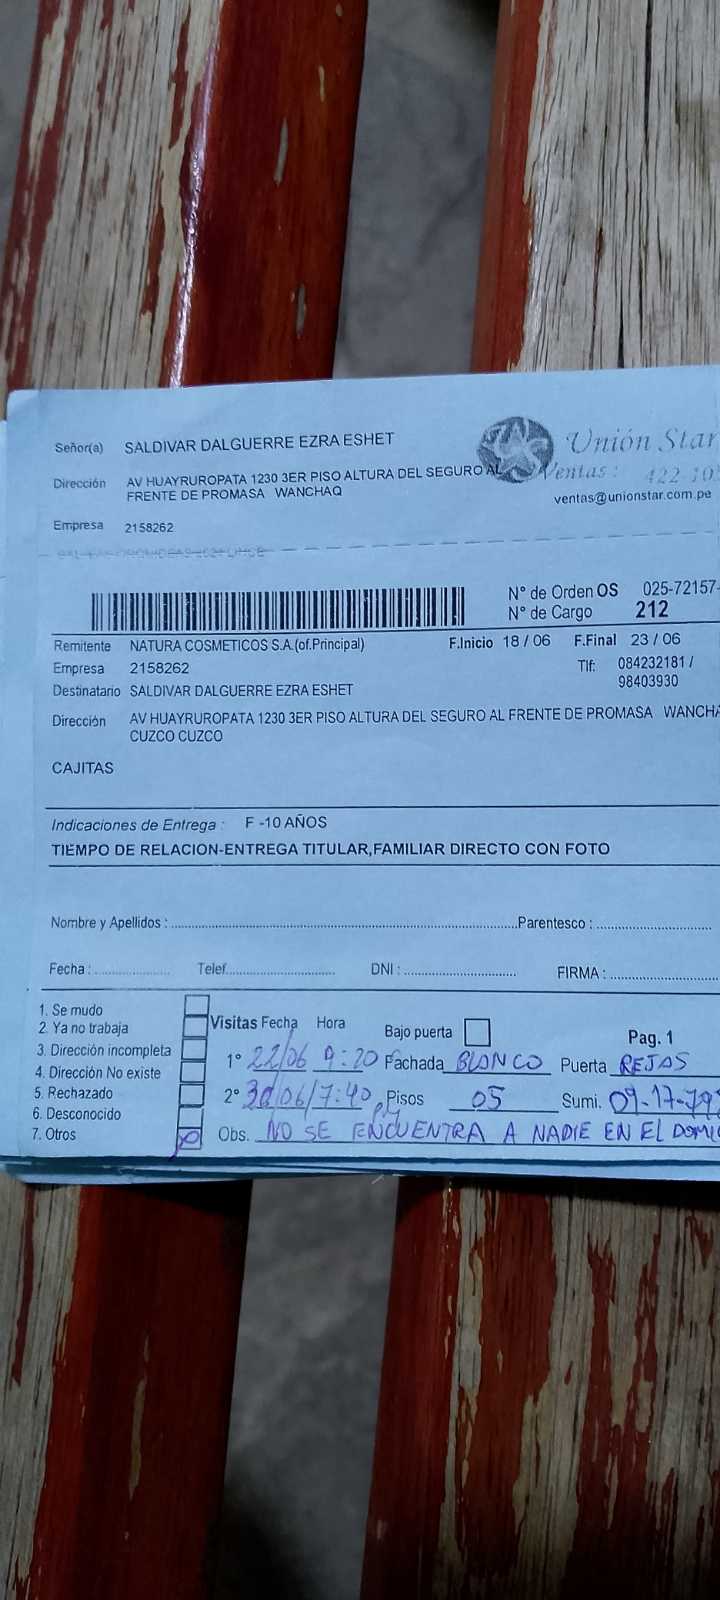 Señor(a) SALDIVAR DALGUERRE EZRA ESHET
Unión Star
Ventas : 422 10
Dirección AV HUAYRUROPATA 1230 3ER PISO ALTURA DEL SEGURO AL
FRENTE DE PROMASA WANCHAQ
ventas@unionstar.com.pe
Empresa 2158262
N° de Orden OS 025-72157-
N° de Cargo 212
Remitente NATURA COSMETICOS S.A.(of.Principal) F.Inicio 18 / 06 F.Final 23 / 06
Empresa 2158262 Tlf: 084232181 /
98403930
Destinatario SALDIVAR DALGUERRE EZRA ESHET
Dirección AV HUAYRUROPATA 1230 3ER PISO ALTURA DEL SEGURO AL FRENTE DE PROMASA WANCHA
CUZCO CUZCO
CAJITAS
Indicaciones de Entrega : F -10 AÑOS
TIEMPO DE RELACION-ENTREGA TITULAR,FAMILIAR DIRECTO CON FOTO
Nombre y Apellidos : Parentesco :
Fecha : Telef. DNI : FIRMA :
1. Se mudo
2. Ya no trabaja
3. Dirección incompleta
4. Dirección No existe
5. Rechazado
6. Desconocido
7. Otros
Visitas Fecha Hora Bajo puerta Pag. 1
1° 22/06 9:20 Fachada BLANCO Puerta REJAS
2° 30/06/7:40 Pisos 05 Sumi. 09-17-79
Obs. NO SE ENCUENTRA A NADIE EN EL DOMI